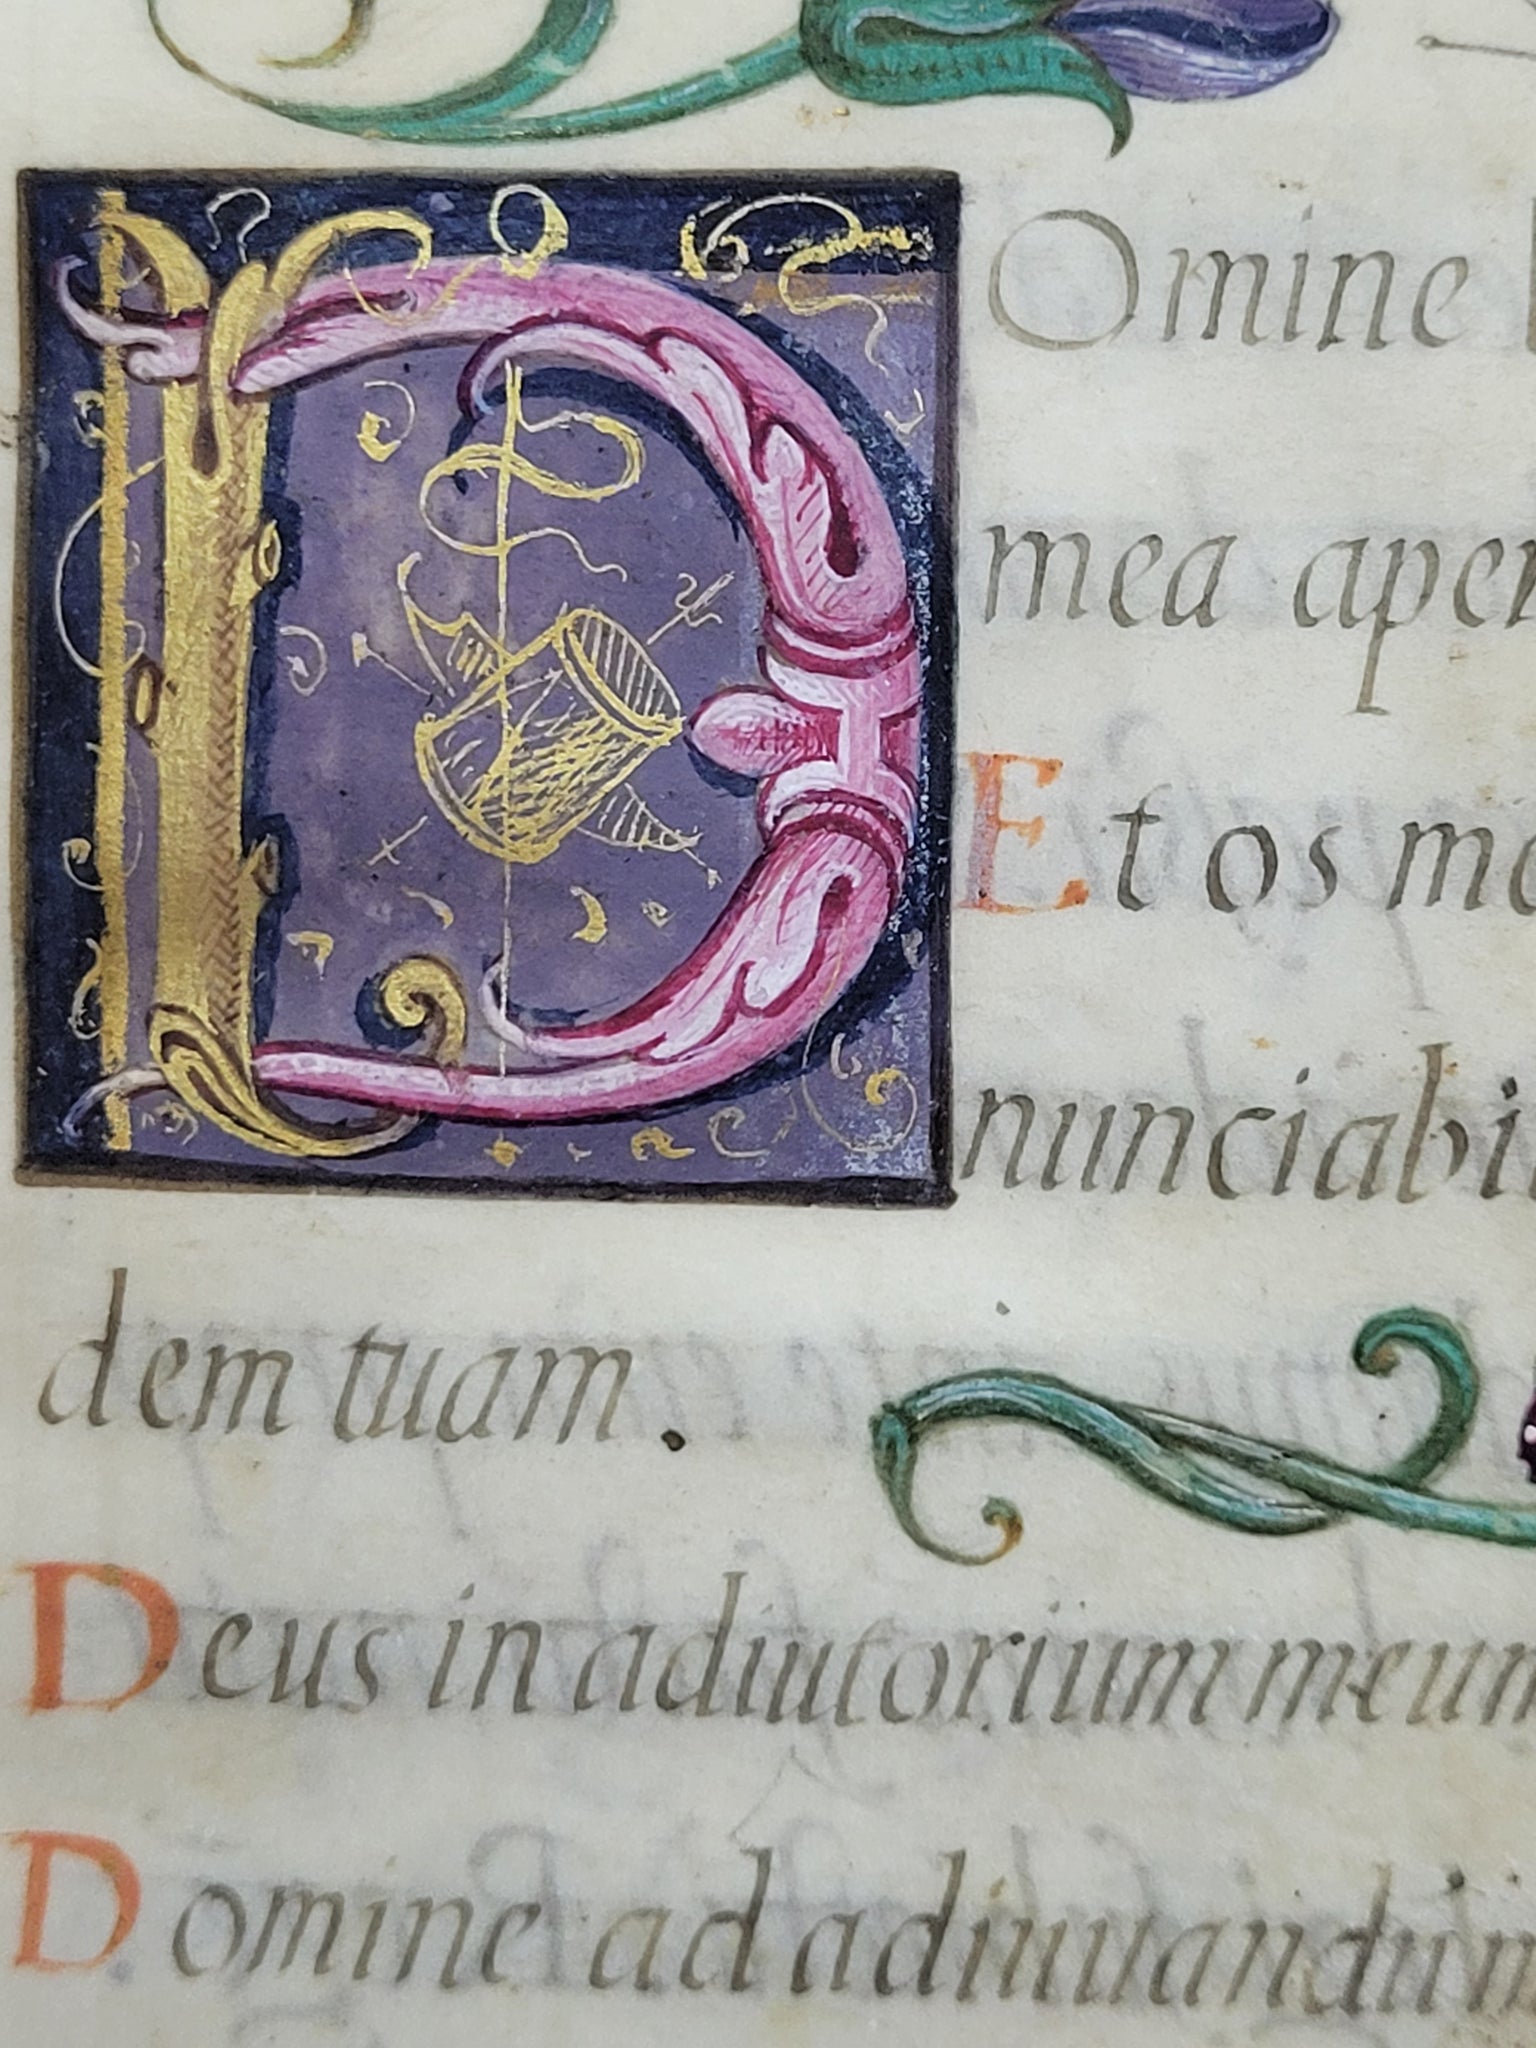 DOmine
mea aper
Et os me
nunciabi
dem tuam.
Deus in adiutorium meum
Domine ad adiuuandum